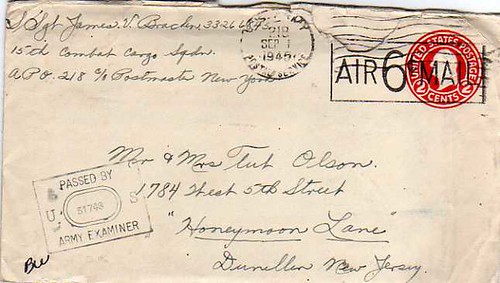 S/Sgt James V. Bracken
15th Combat Cargo Sqdn.
A.P.O. 218 c/o Postmaster New York
218
SEP 1
1945
AIR 6¢ MAIL
UNITED STATES POSTAGE
2 CENTS 2
Mr & Mrs Tut Olson.
1784 West 5th Street
"Honeymoon Lane"
Dunellen New Jersey.
PASSED BY
U. S
51743
ARMY EXAMINER